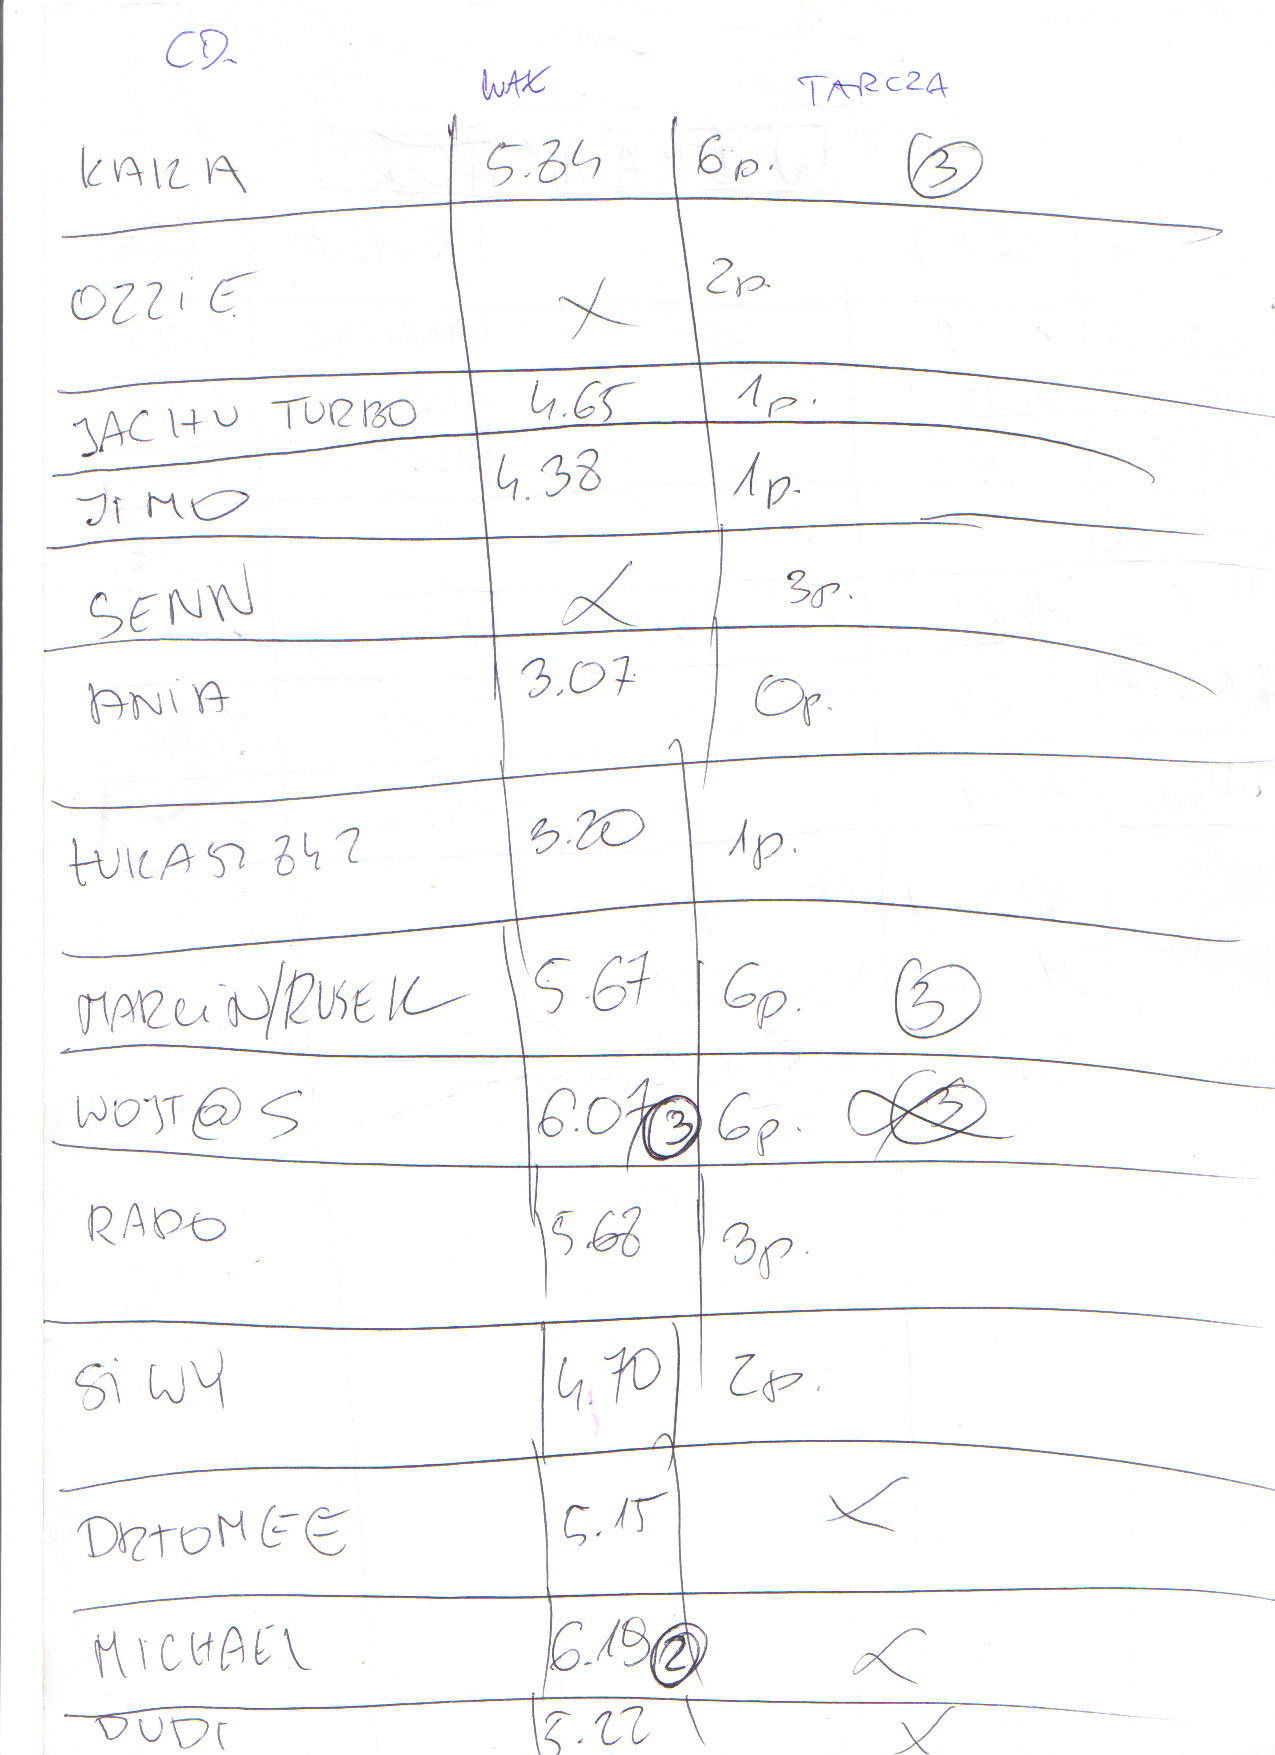 CD.
WAK TARCZA
KARA 5.84 6p. 3
OZZiE X 2p.
JACHU TURBO 4.65 1p.
JiMO 4.38 1p.
SENN X 3p.
ANiA 3.07 0p.
ŁUKASZ 842 3.20 1p.
MARCiN/RUSEK 5.67 6p. 3
WOJT@S 6.07 3 6p. 3
RADO 5.68 3p.
SiWY 4.70 2p.
DRTOMEE 5.15 X
MICHAEL 6.19 2 X
DUDI 5.22 X